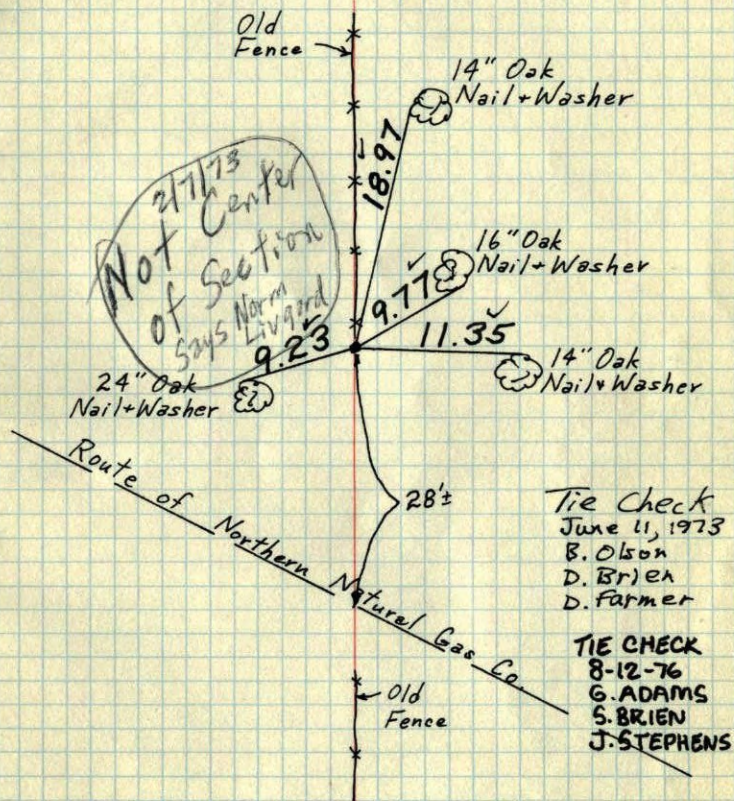 Old
Fence
14" Oak
Nail+Washer
18.97
2/7/73
Not Center
of Section
Says Norm
Livgard
16" Oak
Nail+Washer
9.77
11.35
9.23
14" Oak
Nail+Washer
24" Oak
Nail+Washer
28'±
Route of Northern Natural Gas Co.
Tie Check
June 11, 1973
B. Olson
D. Brien
D. Farmer
TIE CHECK
8-12-76
G. ADAMS
S. BRIEN
J. STEPHENS
Old
Fence